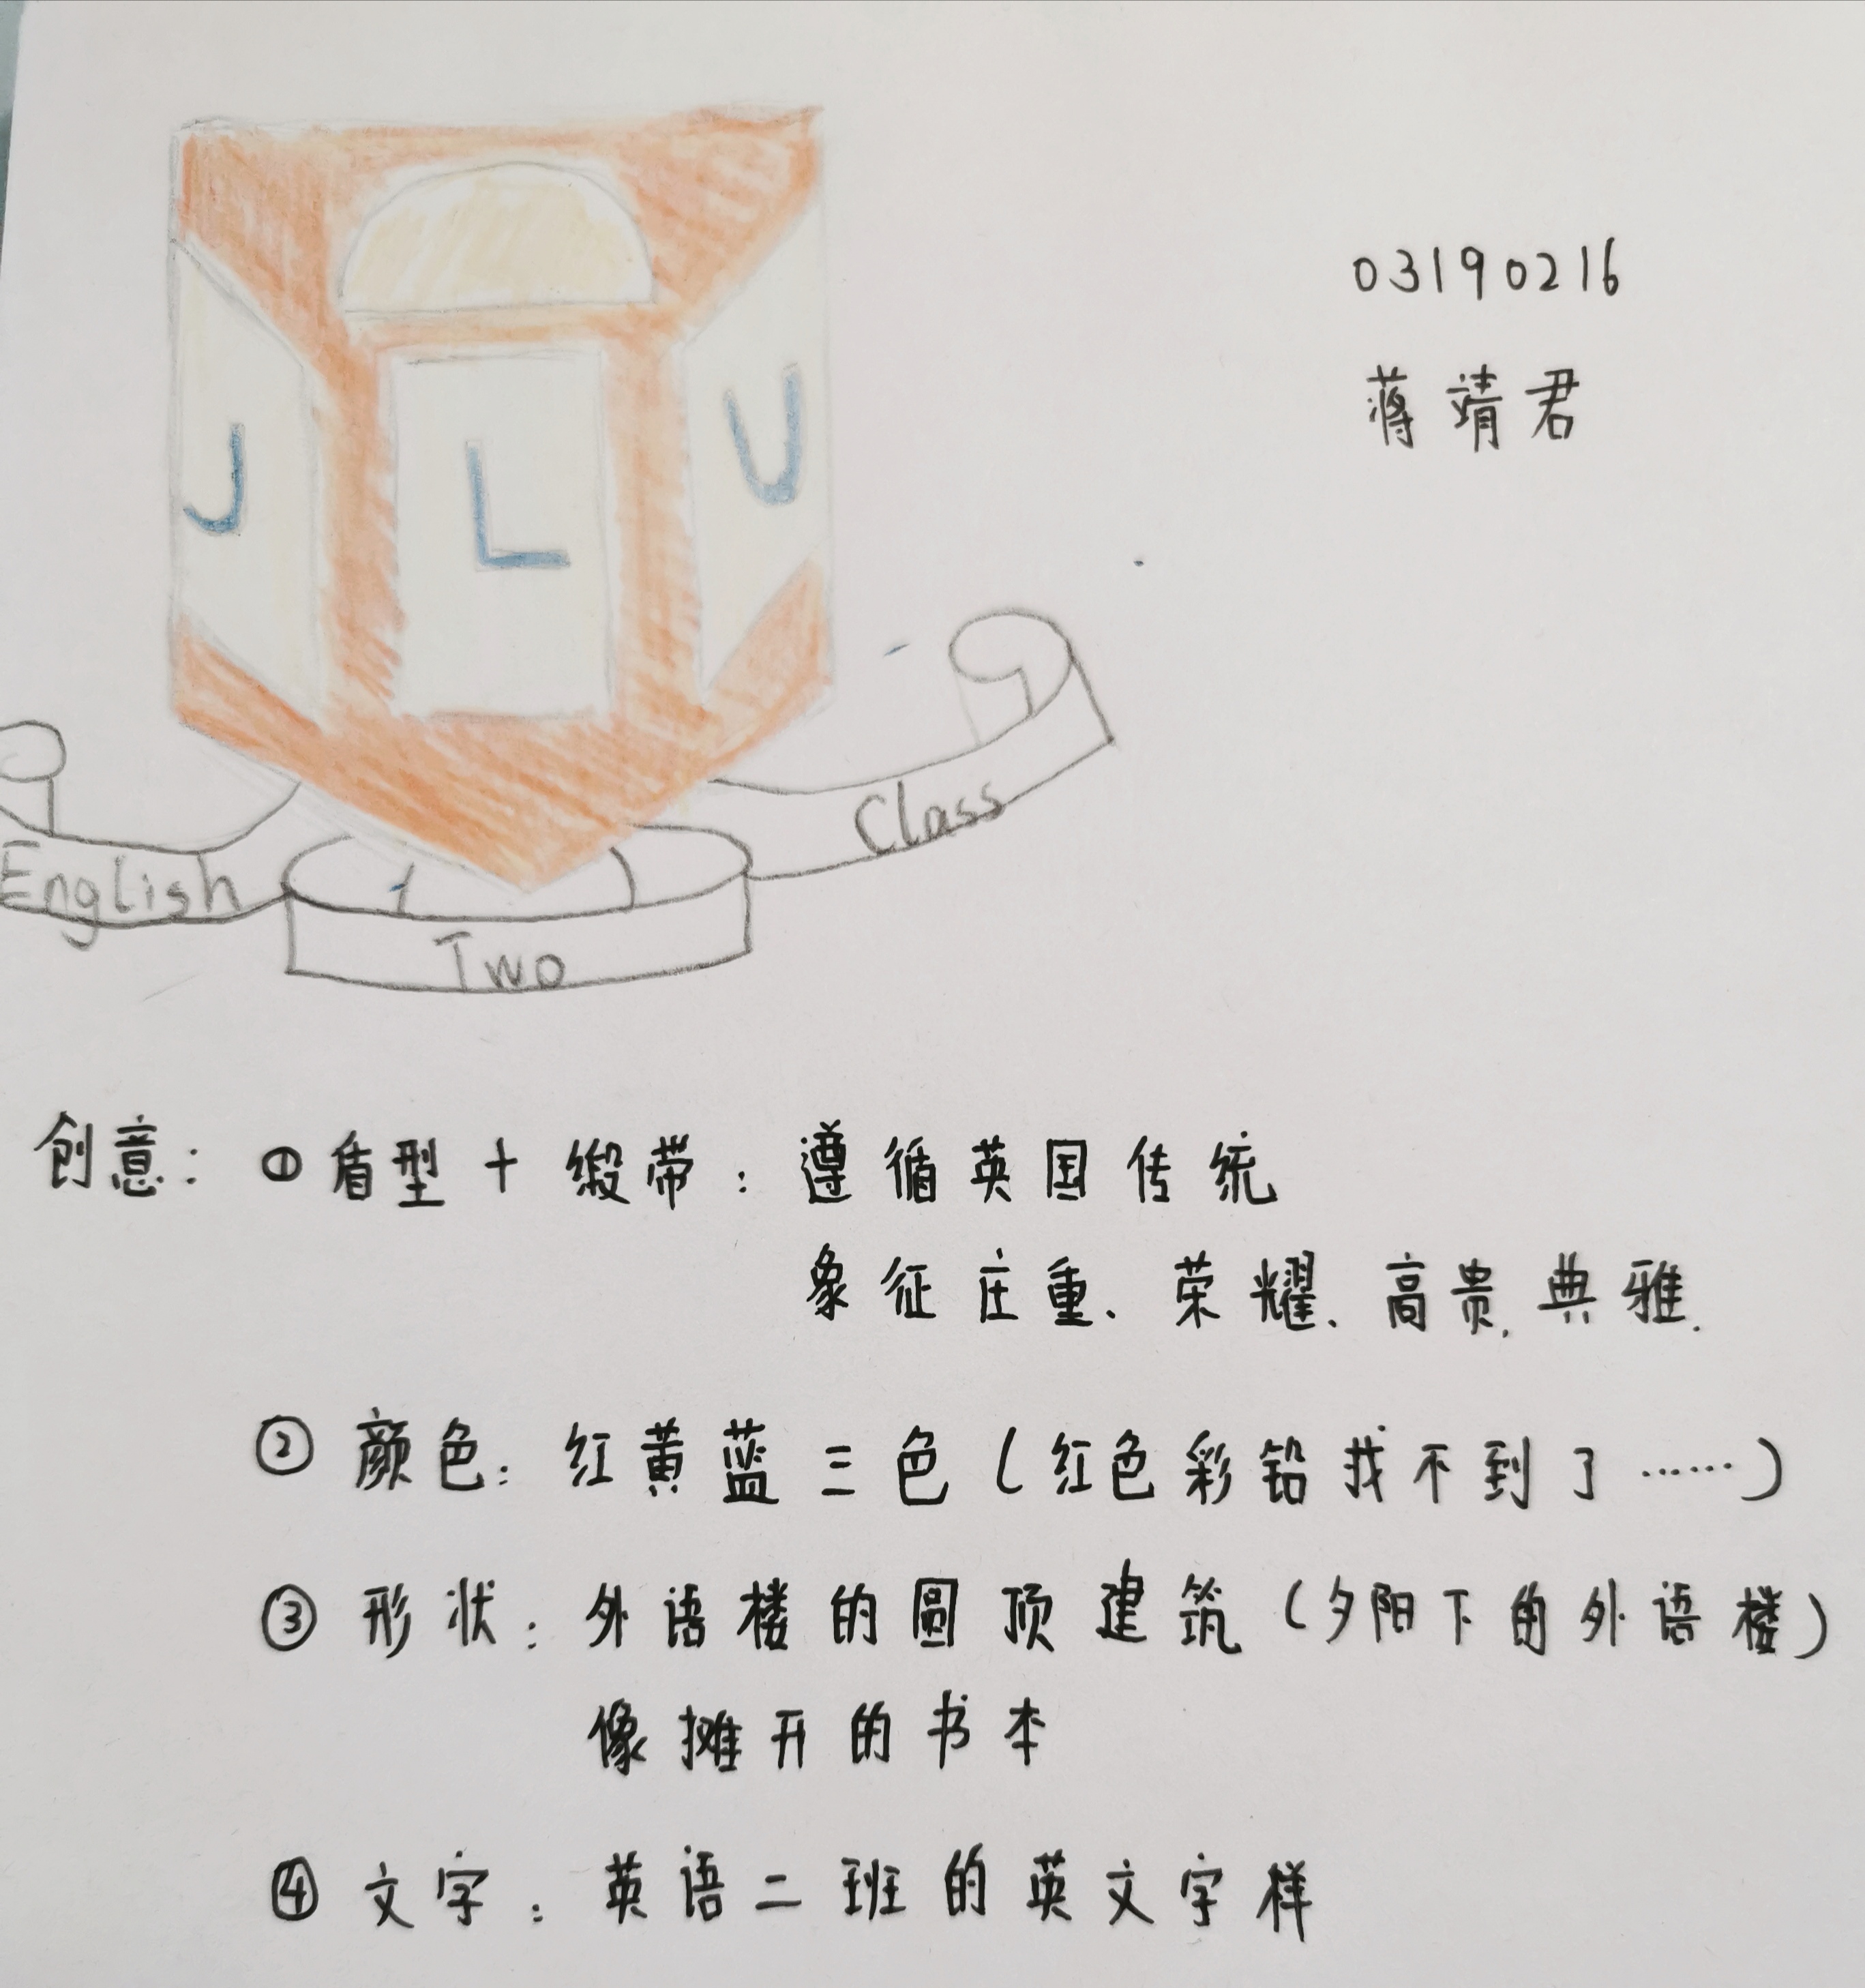 J L U
English Two Class
03190216
蒋靖君
创意：①盾型+缎带：遵循英国传统
象征庄重、荣耀、高贵、典雅.
②颜色：红黄蓝三色（红色彩铅找不到了……）
③形状：外语楼的圆顶建筑（夕阳下的外语楼）
像摊开的书本
④文字：英语二班的英文字样